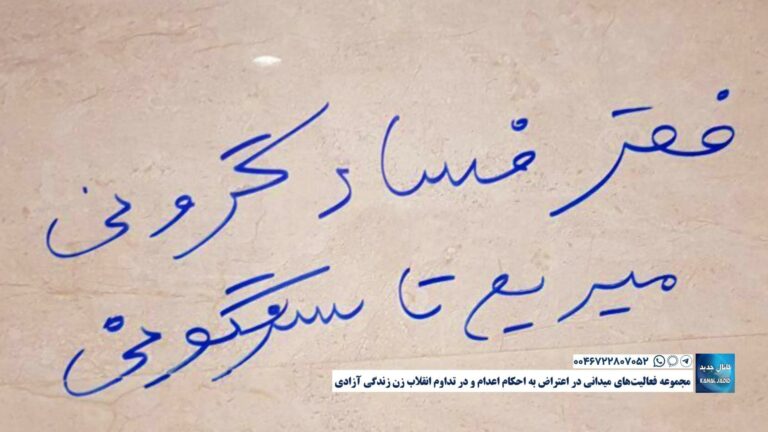 فقر فساد گرونی
میریم تا سرنگونی
۰۰۴۶۷۲۲۸۰۷۰۵۲
مجموعه فعالیت‌های میدانی در اعتراض به احکام اعدام و در تداوم انقلاب زن زندگی آزادی
کانال جدید
KANAL JADID